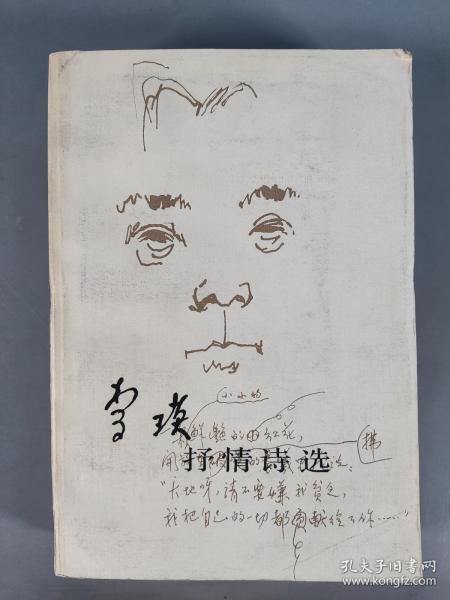 李瑛
抒情诗选
小小的
鲜艳的红花,
"大地呀,请不要嫌我贫乏,
我把自己的一切都贡献给了你……"
孔夫子旧书网
www.kongfz.com